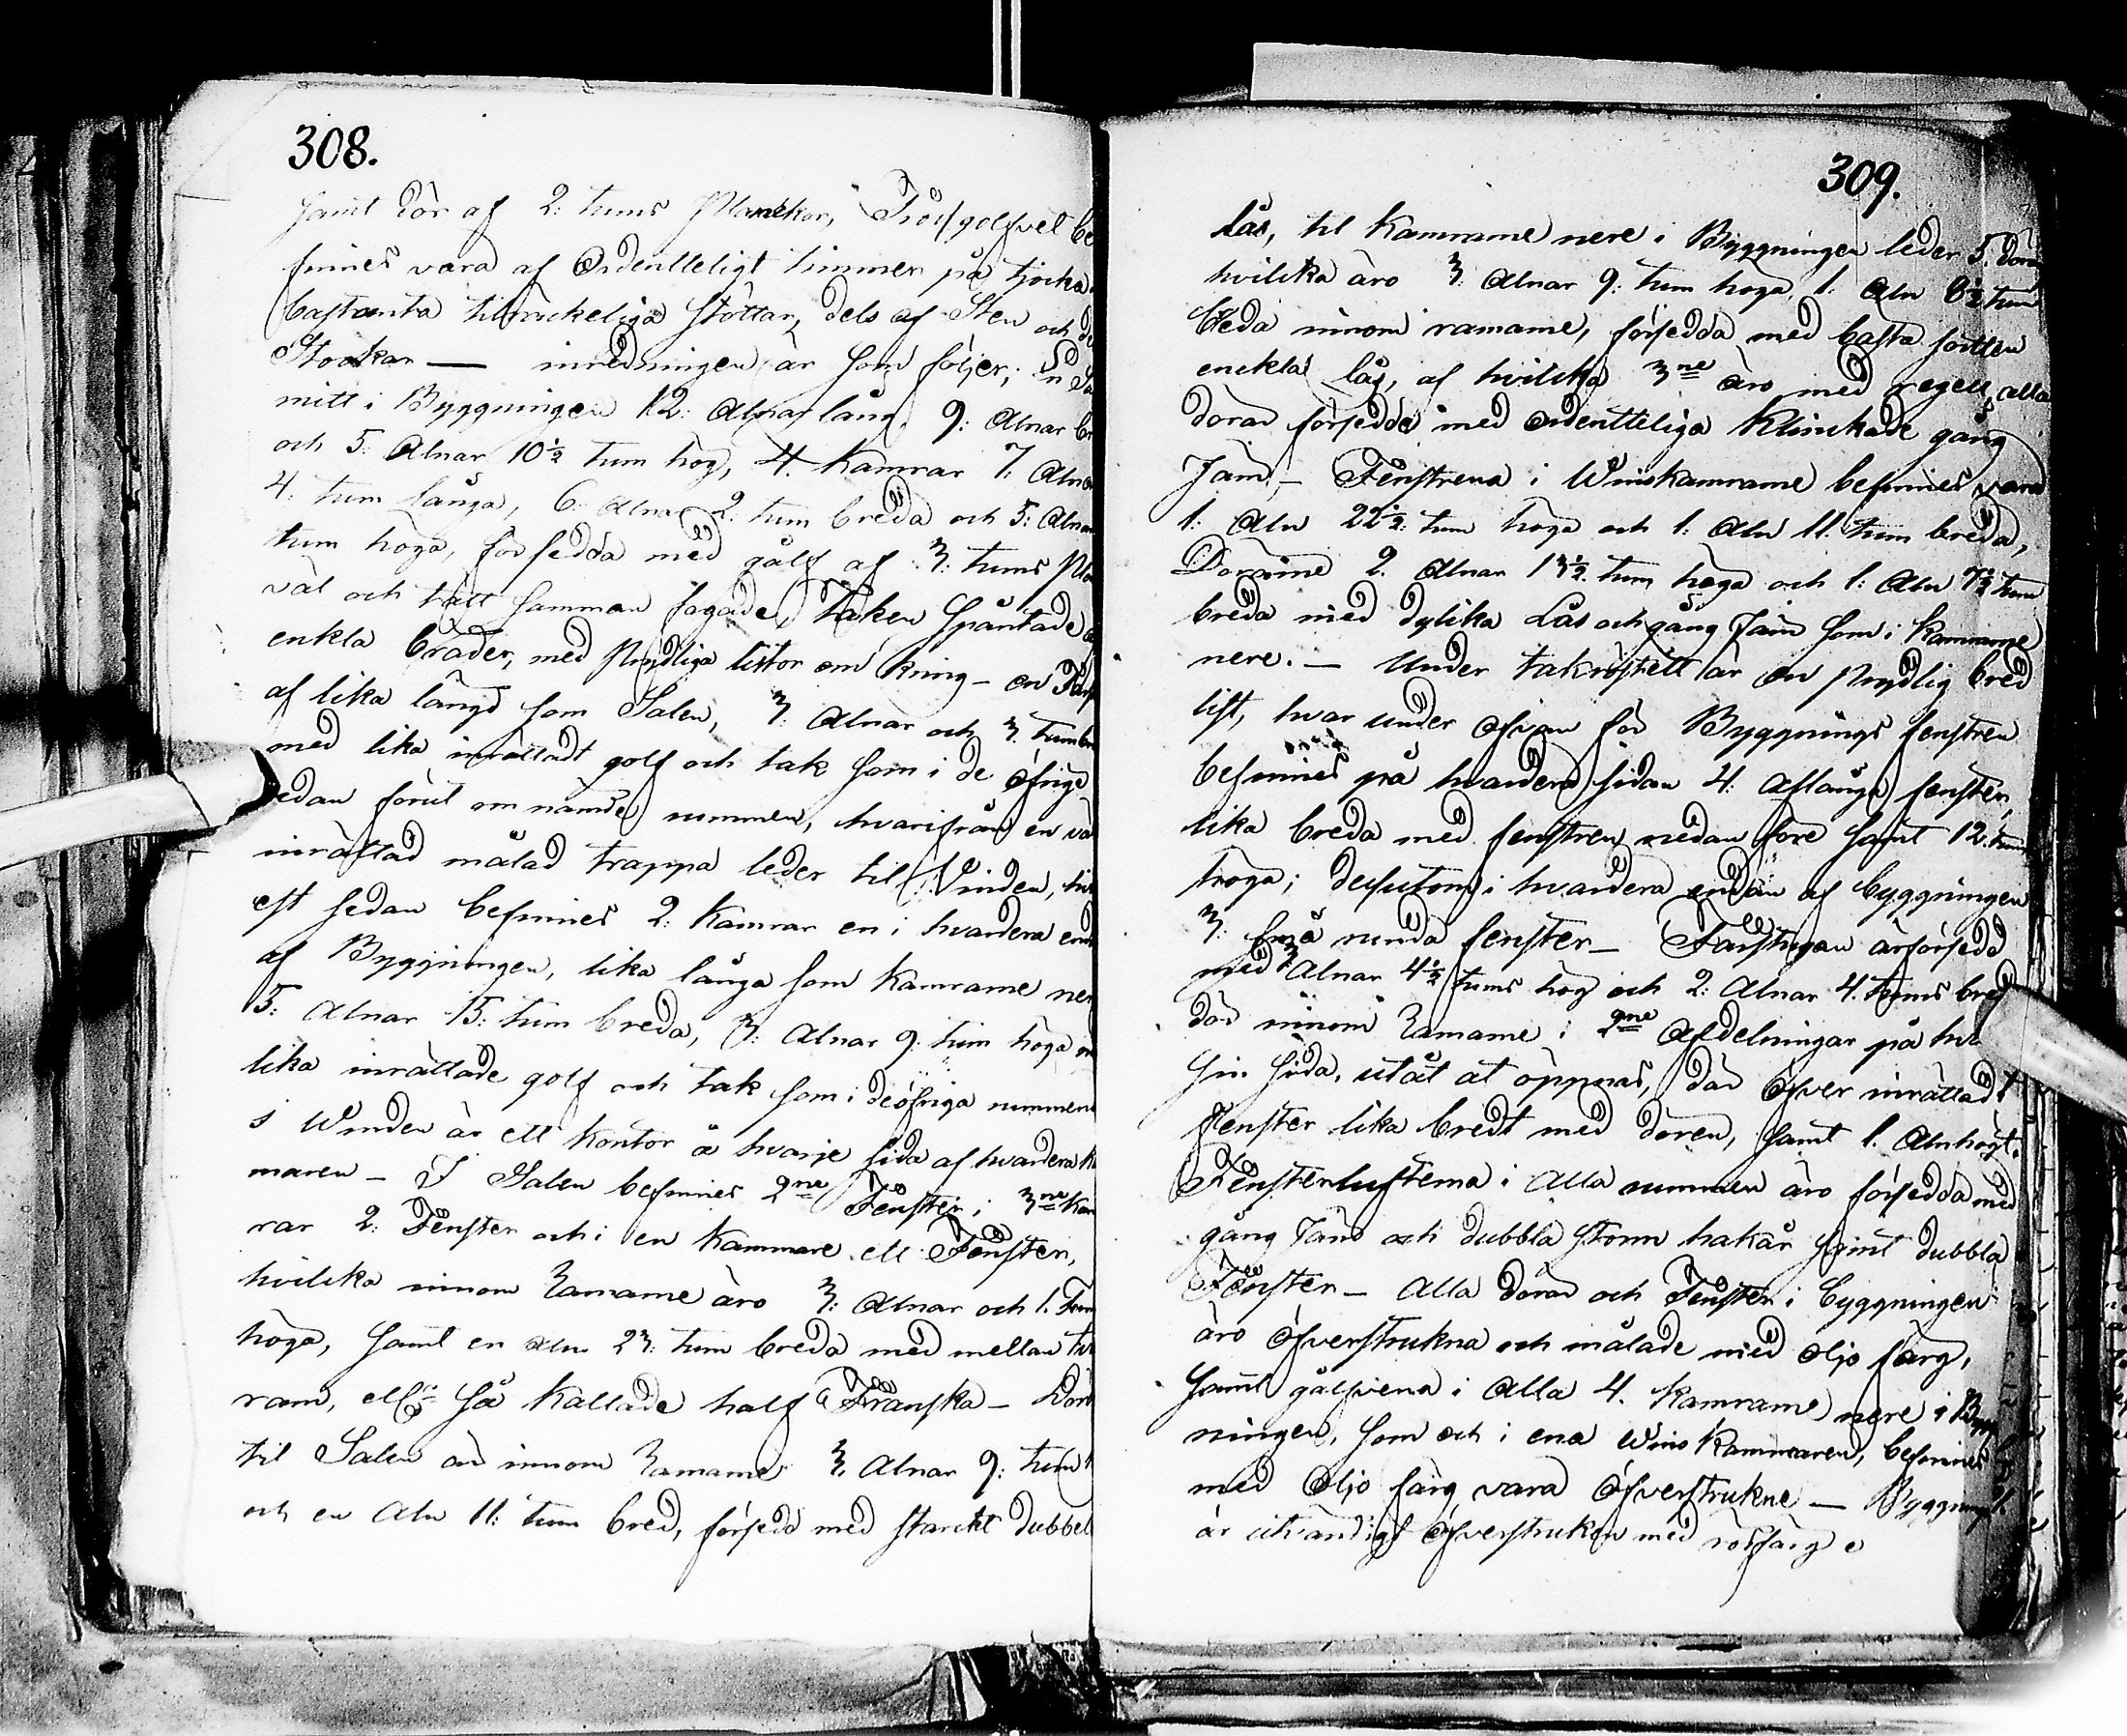 308.
samt dör af 2: tums Plankor, Trosgolfvet be
finnes vara af Ordentteligt timmer på tjocka
bastanta tilräckeliga stöttar, dels af Sten och de
Stockar — inredningen är som följer; En Sa
mitt i Byggningen 12: Alnar lång, 9: Alnar br
och 5: Alnar 10½ tum hög, 4. Kamrar 7: Alna
4: tum långa, 6: Alnar 2: tum breda och 5: Alnar
tum höga, försedda med gålf af 3: tums Pla
väl och tätt samman fogade, Taken Spåntade
enkla bräder, med Prydliga listor om kring – en Fars
af lika längd som Salen, 3: Alnar och 3: tum br
med lika inrättadt golf och tak som i de öfrige
redan förut om nämde rummen, hvarifrån en väl
inrättad målad trappa leder til Vinden, hv
est sedan befinnes 2: Kamrar en i hvardera end
af Byggningen, lika långa som Kamrarne ner
5: Alnar 15: tum breda, 3: Alnar 9: tum höga m
lika inrättade golf och tak som i de öfriga rummen
i Winden är ett kontor å hvarje sida af hvardera K
maren – I Salen befinnes 2ne Fenster, i 3ne Kam
rar 2: Fenster och i en Kammare ett Fenster,
hvilcka innom Ramarne äro 3: Alnar och 1. Tum
höga, samt en aln 23: tum breda med mellan
ram, ellr så kallade half Franska – Dör
til Salen är innom Ramarne 3. Alnar 9: tum h
och en Aln 11: tum bred, försedd med starckt dubbel
309.
lås, til Kamrarne nere i Byggningen leder 5. dörar
hvilcka äro 3: Alnar 9: tum höga, 1: Aln 8½ tum
breda innom ramarne, försedda med basta sorten
enckla lås, af hvilcka 3ne äro med regell, alla
dörar försedde med ordentteliga Klinckade gång
Järn, – Fenstrena i Winskamrarne befinnes vara
1: Aln 22½: tum höga och 1: Aln 11. tum breda,
Dörarne 2. Alnar 13½. tum höga och 1: Aln 7½ tum
breda med dylika Lås och gång Järn som i Kamrarne
nere. – Under takröstett är en prydlig bred
list, hvar under ofvan för Byggnings fenstren
befinnes på hvardera sidan 4: aflånga fenster,
lika breda med fenstren nedan före samt 12. tum
höga; desutom i hvardera endan af byggningen
3: små runda fenster – Farstugan är försedd
med 3 Alnar 4½ tums hög och 2: Alnar 4. tums bred
dör innom Ramarne i 2ne Afdelningar på hv
sin sida, utåt at öppnas, där öfver inrättadt
Fenster lika bredt med dören, samt 1. Aln högt.
Fensterluftema i Alla rummen äro försedda med
gång Järn och dubbla storm hakar samt dubbla
Fenster – Alla dörar och Fenster i byggningen
äro öfverstrukna och målade med Oljo färg,
samt gålfvena i Alla 4. Kamrarne nere i Bygg
ningen, som och i ena Wins Kammaren, befinnes
med Oljo färg vara öfverstrukne — Byggning
är utvändigt öfverstruken med rödfärg